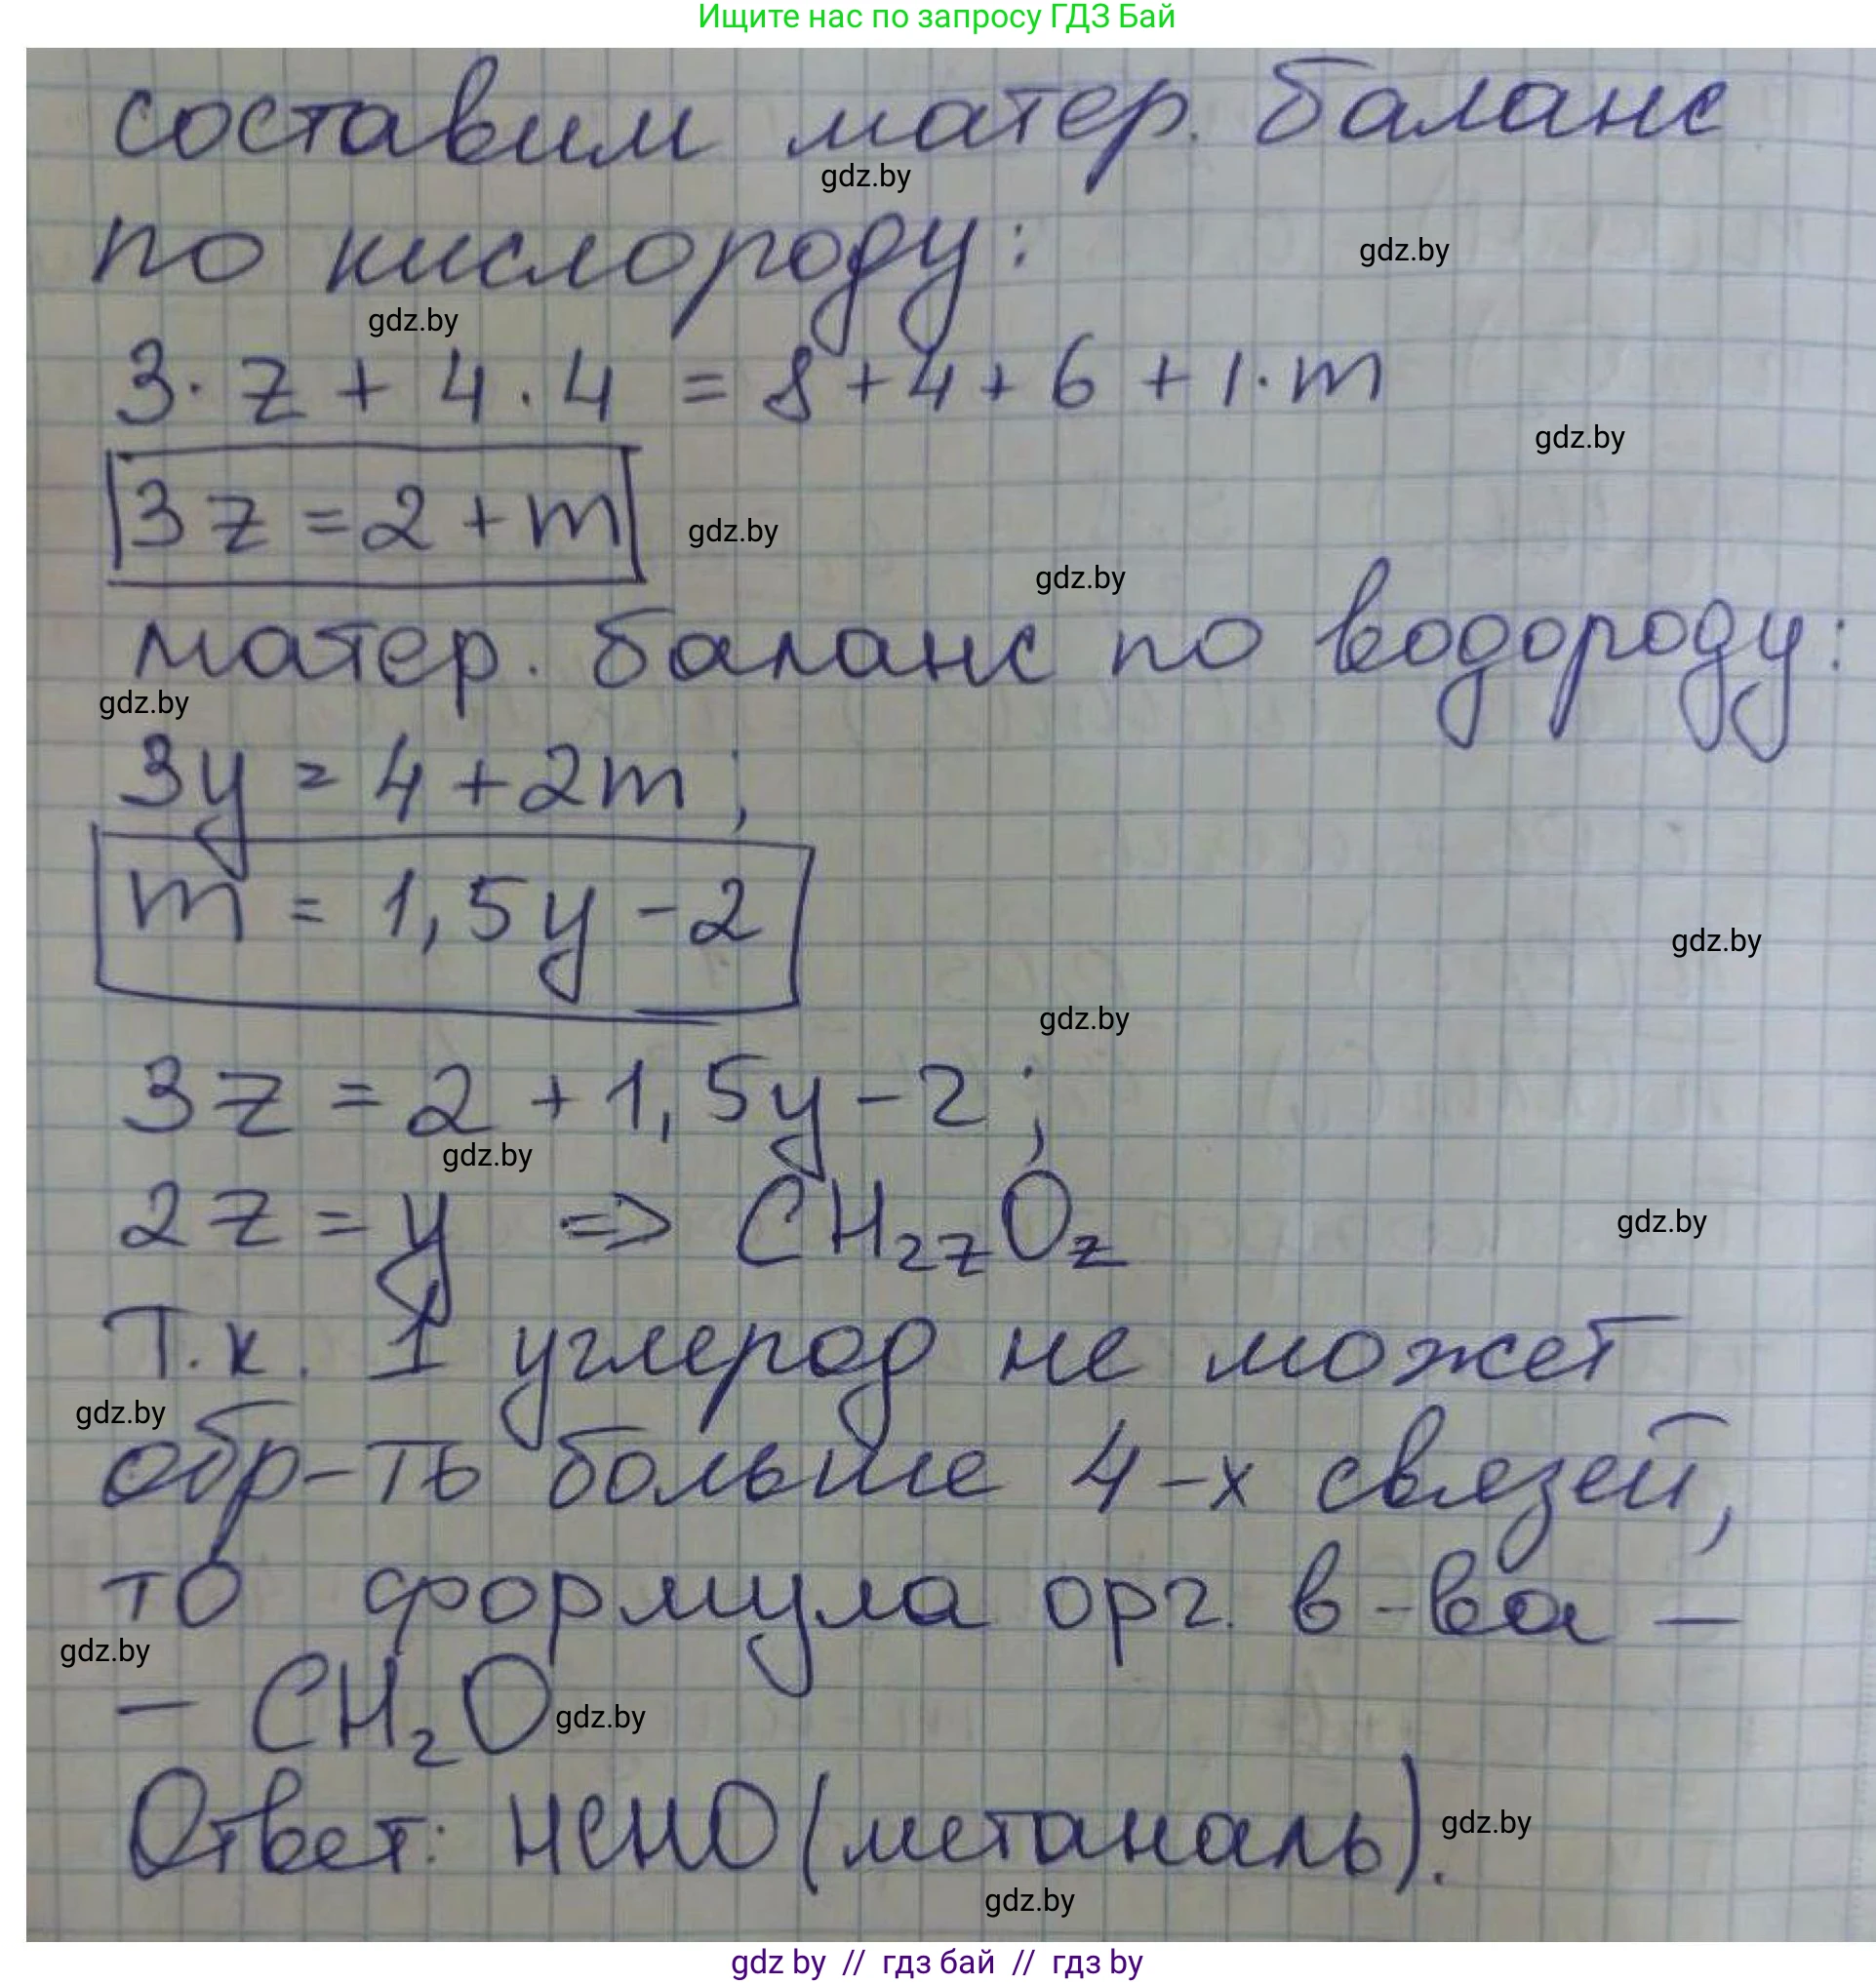 Ищите нас по запросу ГДЗ Бай
составим матер. баланс
gdz.by
по кислороду:
gdz.by
gdz.by
3· z + 4 · 4 = 8 + 4 + 6 + 1 · m
gdz.by
3z = 2 + m
gdz.by
gdz.by
матер. баланс по водороду:
gdz.by
3y = 4 + 2m ;
m = 1,5y - 2
gdz.by
gdz.by
3z = 2 + 1,5y - 2 ;
gdz.by
2z = y => CH₂zOz
gdz.by
Т.к. 1 углерод не может
gdz.by
обр-ть больше 4-х связей,
то формула орг. в-ва –
gdz.by
– CH₂O
gdz.by
Ответ: HCHO (метаналь).
gdz.by
gdz.by
gdz by // гдз бай // гдз by